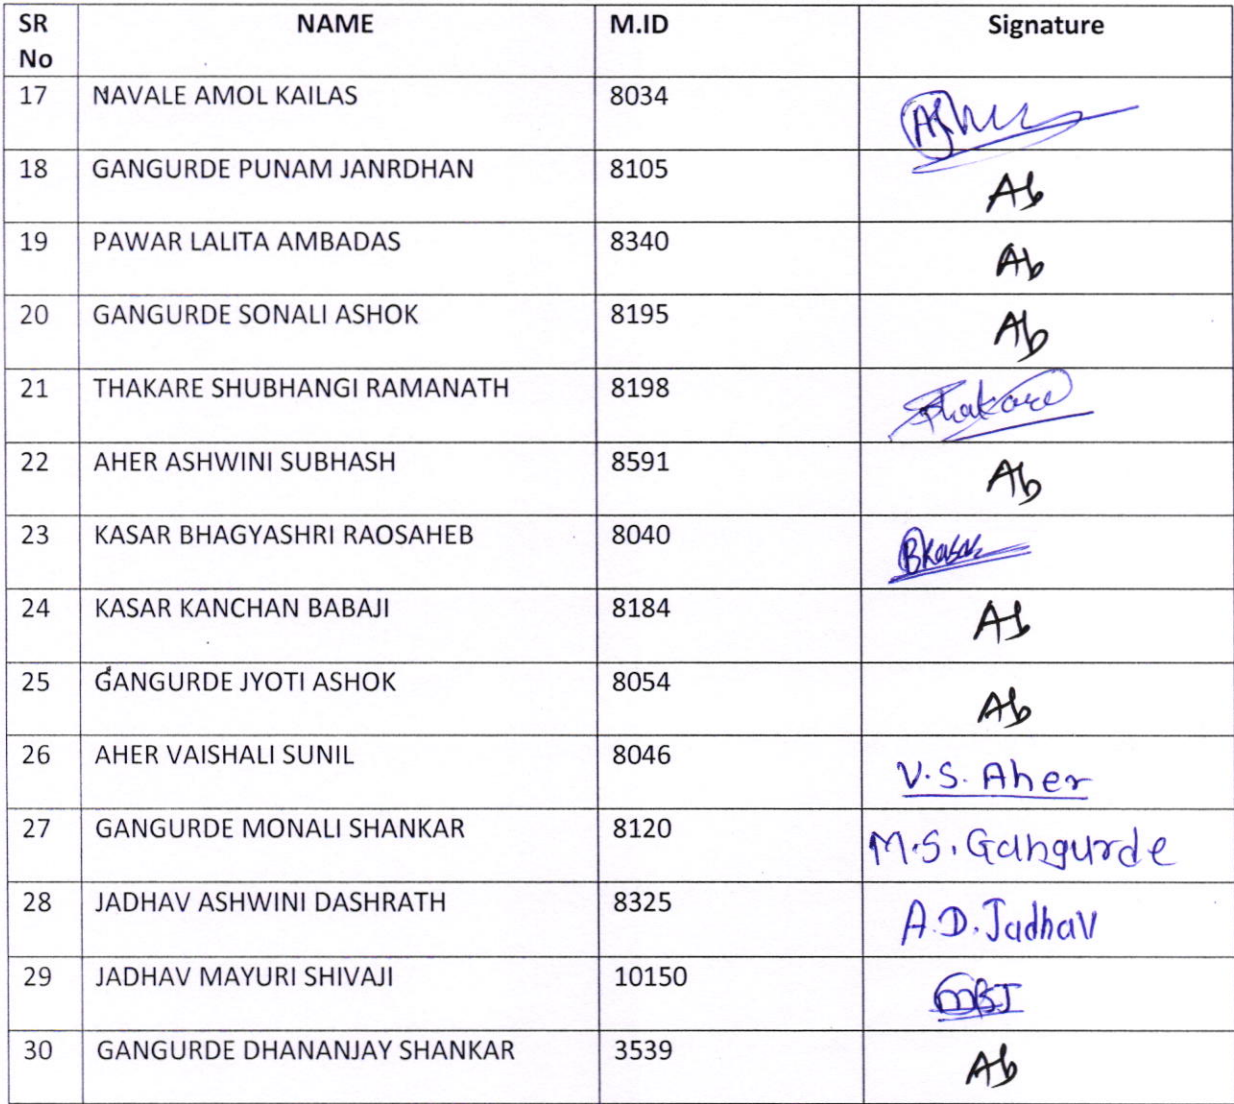 SR No NAME M.ID Signature
17 NAVALE AMOL KAILAS 8034
18 GANGURDE PUNAM JANRDHAN 8105 Ab
19 PAWAR LALITA AMBADAS 8340 Ab
20 GANGURDE SONALI ASHOK 8195 Ab
21 THAKARE SHUBHANGI RAMANATH 8198 Thakare
22 AHER ASHWINI SUBHASH 8591 Ab
23 KASAR BHAGYASHRI RAOSAHEB 8040 BKasar
24 KASAR KANCHAN BABAJI 8184 Ab
25 GANGURDE JYOTI ASHOK 8054 Ab
26 AHER VAISHALI SUNIL 8046 V.S. Aher
27 GANGURDE MONALI SHANKAR 8120 M.S. Gangurde
28 JADHAV ASHWINI DASHRATH 8325 A.D. Jadhav
29 JADHAV MAYURI SHIVAJI 10150
30 GANGURDE DHANANJAY SHANKAR 3539 Ab